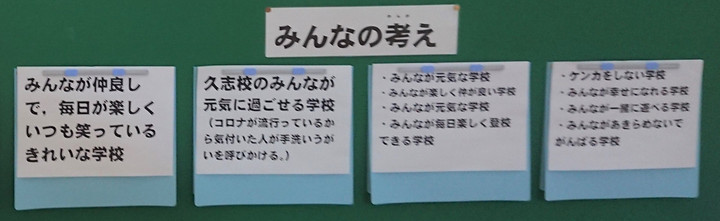 みんなの考え
みんなが仲良し
で，毎日が楽しく
いつも笑っている
きれいな学校
久志校のみんなが
元気に過ごせる学校
（コロナが流行っているか
ら気付いた人が手洗いうが
いを呼びかける。）
・みんなが元気な学校
・みんなが楽しく仲が良い学校
・みんなが元気な学校
・みんなが毎日楽しく登校
できる学校
・ケンカをしない学校
・みんなが幸せになれる学校
・みんなが一緒に遊べる学校
・みんながあきらめないで
がんばる学校